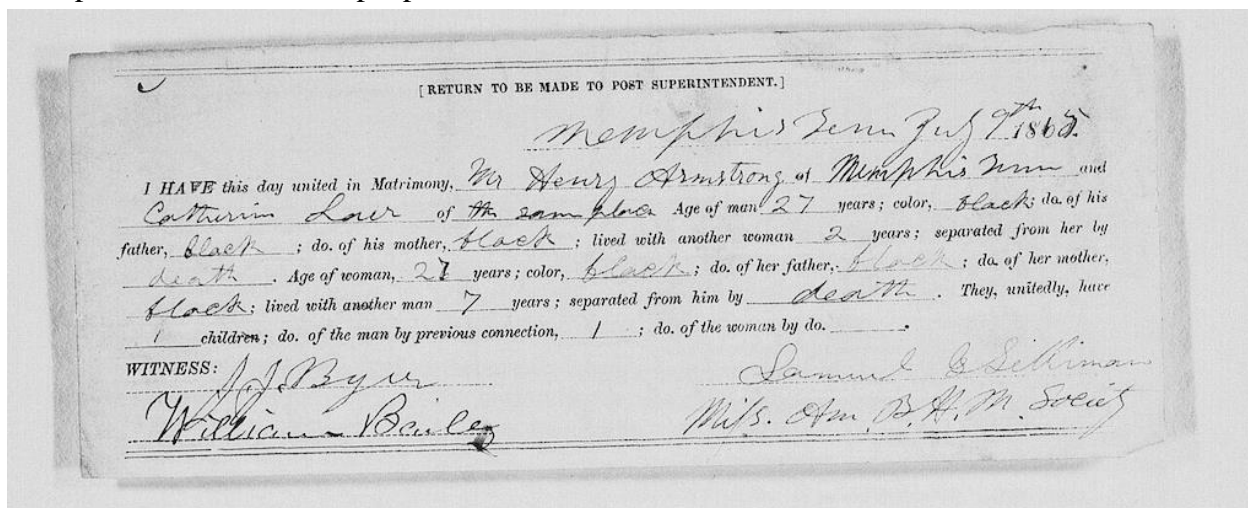 [ RETURN TO BE MADE TO POST SUPERINTENDENT.]
Memphis Tenn July 9th 1865.
I HAVE this day united in Matrimony, Mr Henry Armstrong of Memphis Tenn and
Catherin of the same place Age of man 27 years; color, black; do. of his
father, black ; do. of his mother, black ; lived with another woman 2 years; separated from her by
death . Age of woman, 27 years; color, black; do. of her father, black ; do. of her mother,
black; lived with another man 7 years; separated from him by death . They, unitedly, have
1 children; do. of the man by previous connection, 1 ; do. of the woman by do. .
WITNESS:
J. J. Byer
Samuel Silliman
William Bailey
Miss. Am. B. H. M. Society